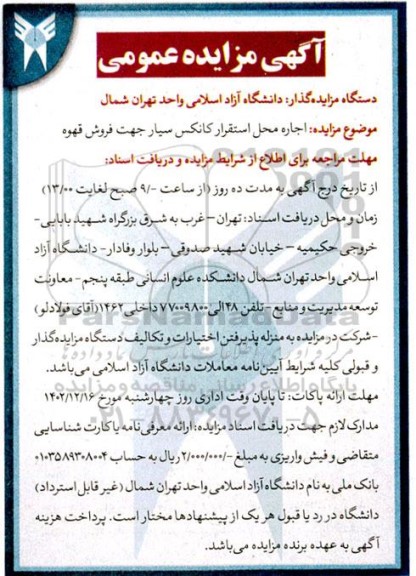 آگهی مزایده عمومی
دستگاه مزایده‌گذار: دانشگاه آزاد اسلامی واحد تهران شمال
موضوع مزایده: اجاره محل استقرار کانکس سیار جهت فروش قهوه
مهلت مراجعه برای اطلاع از شرایط مزایده و دریافت اسناد:
از تاریخ درج آگهی به مدت ده روز (از ساعت ۹/۰ صبح لغایت ۱۳/۰۰)
زمان و محل دریافت اسناد: تهران – غرب به شرق بزرگراه شهید بابایی-
خروجی حکیمیه – خیابان شهید صدوقی – بلوار وفادار - دانشگاه آزاد
اسلامی واحد تهران شمال دانشکده علوم انسانی طبقه پنجم - معاونت
توسعه مدیریت و منابع - تلفن ۴۸ الی ۷۷۰۰۹۸۰۰ داخلی ۱۴۶۲ (آقای فولادلو)
-شرکت در مزایده به منزله پذیرفتن اختیارات و تکالیف دستگاه مزایده‌گذار
و قبولی کلیه شرایط آیین نامه معاملات دانشگاه آزاد اسلامی می‌باشد.
مهلت ارائه پاکات: تا پایان وقت اداری روز چهارشنبه مورخ ۱۴۰۲/۱۲/۱۶
مدارک لازم جهت دریافت اسناد مزایده: ارائه معرفی‌نامه یا کارت شناسایی
متقاضی و فیش واریزی به مبلغ -/۲/۰۰۰/۰۰۰ ریال به حساب ۰۱۰۳۵۸۹۳۰۸۰۰۴
بانک ملی به نام دانشگاه آزاد اسلامی واحد تهران شمال (غیر قابل استرداد)
دانشگاه در رد یا قبول هر یک از پیشنهادها مختار است. پرداخت هزینه
آگهی به عهده برنده مزایده می‌باشد.
ParsNamadData
پایگاه اطلاع رسانی مناقصه و مزایده
۰۲۱-۸۸۳۴۹۶۷۰-۵